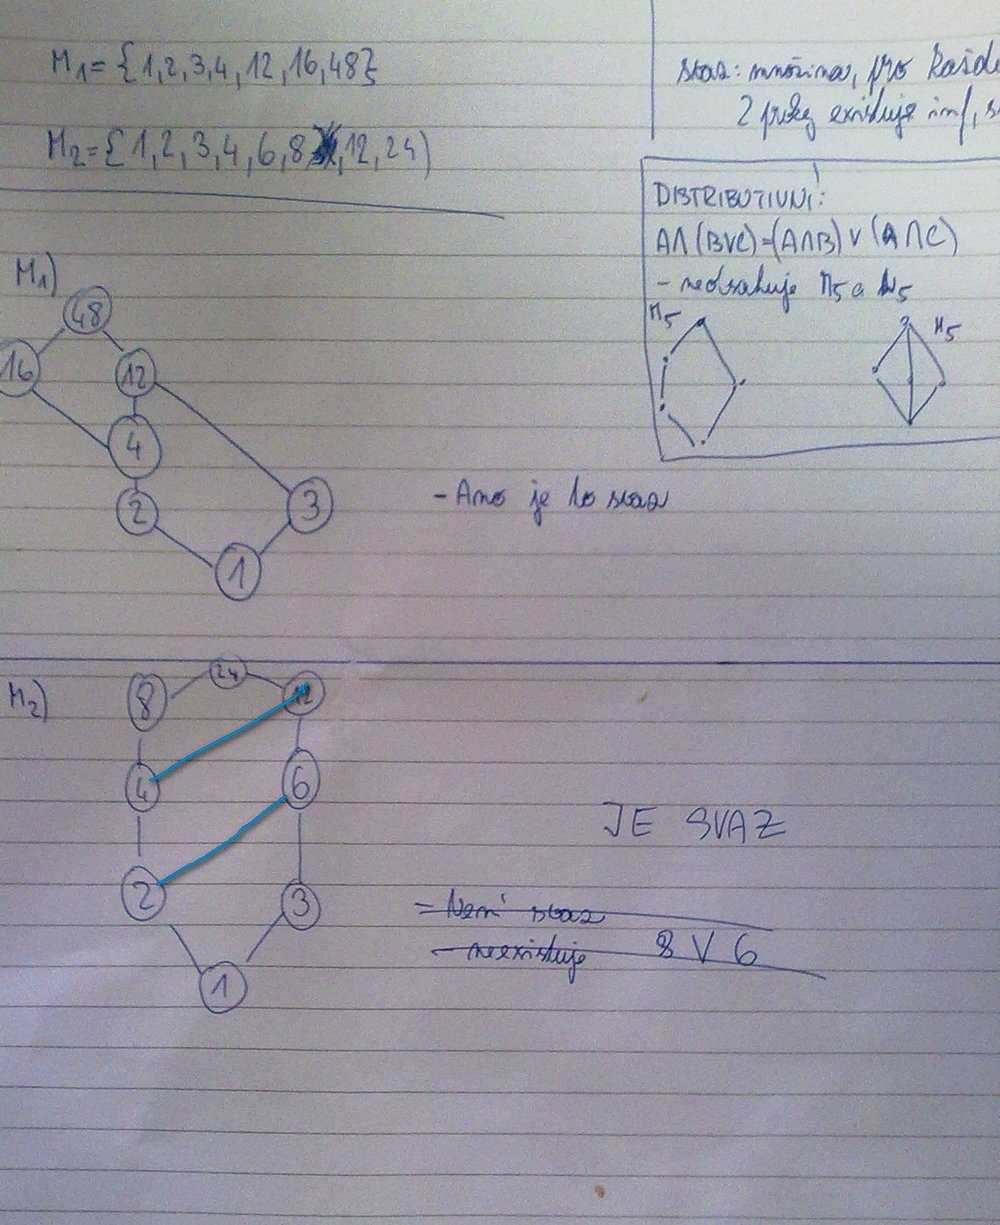 M1 = {1,2,3,4,12,16,48}
M2 = {1,2,3,4,6,8,12,24)
svaz: množina, pro každé
2 prvky existuje inf, s
DISTRIBUTIVNÍ:
A∧(B∨C)=(A∧B)∨(A∧C)
- neobsahuje M5 a N5
N5
M5
M1)
48
16
12
4
2
3
1
- Ano je to svaz
M2)
24
8
12
4
6
2
3
1
JE SVAZ
- Není svaz
- neexistuje 8 V 6